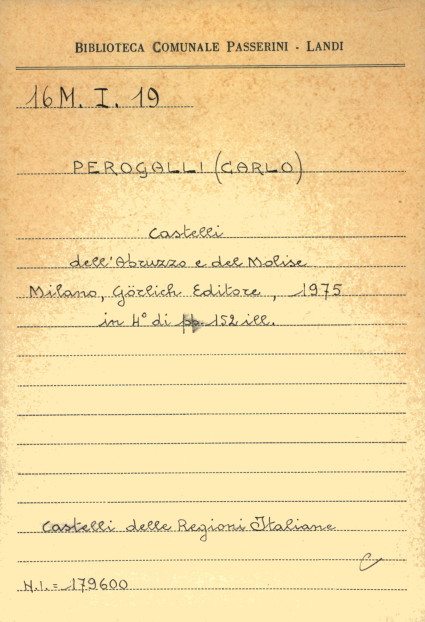 BIBLIOTECA COMUNALE PASSERINI - LANDI
16M. I. 19
PEROGALLI (CARLO)
Castelli
dell'Abruzzo e del Molise
Milano, Görlich Editore, 1975
in 4° di pp. 152 ill.
Castelli delle Regioni Italiane
C
N.I. = 179600